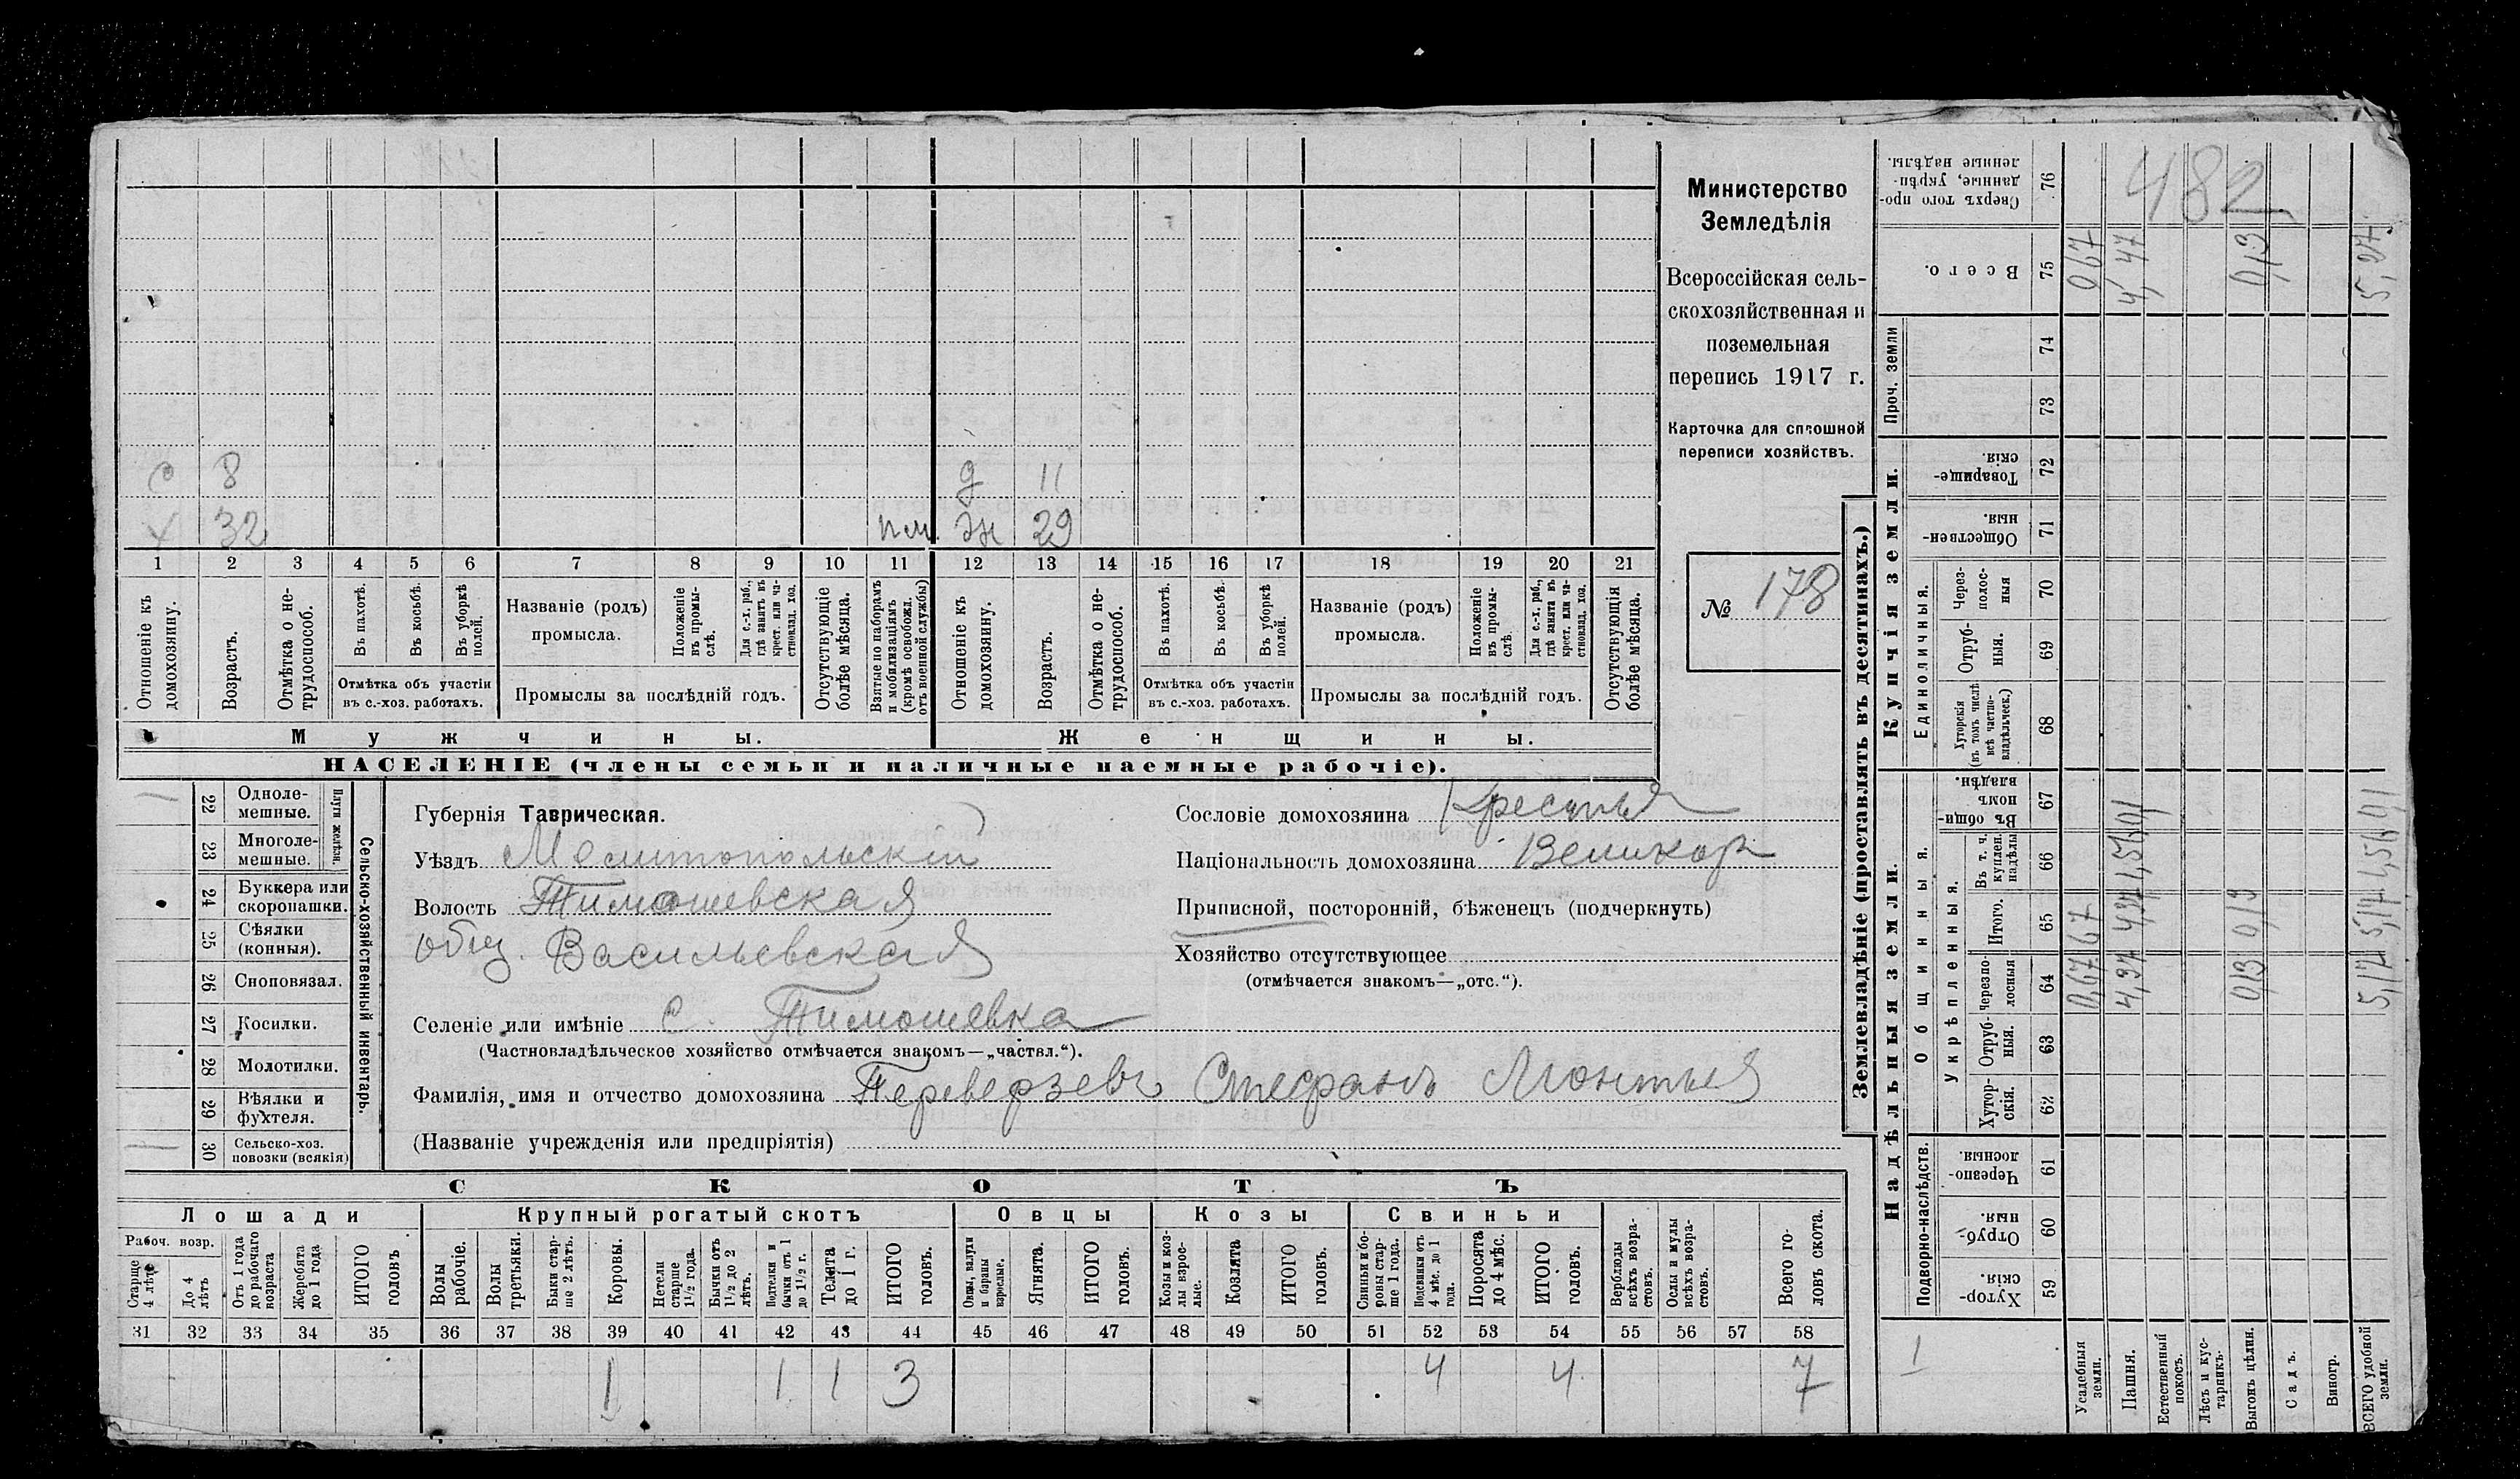 482
0,67 4,47 0,13 5,27
с 8 д 11
х 32 пм. Ж 29
1 2 3 4 5 6 7 8 9 10 11 12 13 14 15 16 17 18 19 20 21
Отношеніе къ домохозяину.
Возрастъ.
Отмѣтка о не-
трудоспособ.
Въ пахотѣ.
Въ косьбѣ.
Въ уборкѣ полей.
Отмѣтка объ участіи
въ с.-хоз. работахъ.
Названіе (родъ)
промысла.
Положеніе въ промы-
слѣ.
Для с.-х. раб.,
гдѣ занятъ въ
крест. или ча-
стновлад. хоз.
Промыслы за послѣдній годъ.
Отсутствующіе
болѣе мѣсяца.
Взятые по наборамъ
и мобилизаціямъ
(кромѣ освобожд.
отъ военной службы)
Отношеніе къ
домохозяину.
Возрастъ.
Отмѣтка о не-
трудоспособ.
Въ пахотѣ.
Въ косьбѣ.
Въ уборкѣ
полей.
Отмѣтка объ участіи
въ с.-хоз. работахъ.
Названіе (родъ)
промысла.
Положеніе
въ промы-
слѣ.
Для с.-х. раб.,
гдѣ занята въ
крест. или ча-
стновлад. хоз.
Промыслы за послѣдній годъ.
Отсутствующія
болѣе мѣсяца.
Мужчины.
Женщины.
НАСЕЛЕНІЕ (члены семьи и наличные наемные рабочіе).
Министерство
Земледѣлія
Всероссійская сель-
скохозяйственная и
поземельная
перепись 1917 г.
Карточка для сплошной
переписи хозяйствъ.
№ 178
22 Одноле-
мешные.
23 Многоле-
мешные.
Плуги желѣзн.
24 Буккера или
скоропашки.
25 Сѣялки
(конныя).
26 Сноповязал.
27 Косилки.
28 Молотилки.
29 Вѣялки и
фухтеля.
30 Сельско-хоз.
повозки (всякія)
Сельско-хозяйственный инвентарь.
Губернія Таврическая.
Уѣздъ Мелитопольскій
Волость Тимошевская
общ. Васильевская
Селеніе или имѣніе с. Тимошевка
(Частновладѣльческое хозяйство отмѣчается знакомъ—„частвл.“).
Фамилія, имя и отчество домохозяина Переверзевъ Стефанъ Леонтья
(Названіе учрежденія или предпріятія)
Сословіе домохозяина Крестья
Національность домохозяина Великор
Приписной, посторонній, бѣженецъ (подчеркнуть)
Хозяйство отсутствующее
(отмѣчается знакомъ—„отс.“).
СКОТЪ
Лошади
Крупный рогатый скотъ
Овцы
Козы
Свиньи
Рабоч. возр.
Старше
4 лѣтъ
До 4
лѣтъ
Отъ 1 года
до рабочаго
возраста
Жеребята
до 1 года
ИТОГО
головъ
Волы
рабочіе.
Волы
третьяки.
Быки стар-
ше 2 лѣтъ.
Коровы.
Нетели
старше
1½ года.
Бычки отъ
1½ до 2
лѣтъ.
Подтелки и
бычки отъ 1
до 1½ г.
Телята
до 1 г.
ИТОГО
головъ.
Овцы, валухи
и бараны
взрослые.
Ягнята.
ИТОГО
головъ.
Козы и коз-
лы взрос-
лые.
Козлята
ИТОГО
головъ.
Свиньи и бо-
ровы стар-
ше 1 года.
Подсвинки отъ
4 мѣс. до 1
года.
Поросята
до 4 мѣс.
ИТОГО
головъ.
Верблюды
всѣхъ возра-
стовъ.
Ослы и мулы
всѣхъ возра-
стовъ.
Всего го-
ловъ скота.
31 32 33 34 35 36 37 38 39 40 41 42 43 44 45 46 47 48 49 50 51 52 53 54 55 56 57 58
1 1 1 3 4 4 7
Землевладѣніе (проставлять въ десятинахъ.)
Надѣльныя земли.
Купчія земли.
Проч. земли
Подворно-наслѣдств.
Общинныя.
Укрѣпленныя.
Единоличныя.
Сверхъ того про-
данные, укрѣп-
ленные надѣлы. 76
Всего. 75
74
73
Товарище-
скія. 72
Обществен-
ныя. 71
Через-
полос-
ныя 70
Отруб-
ныя. 69
Хуторскія
(въ томъ числѣ
всѣ частно-
владѣльческ.) 68
Въ общин-
номъ
владѣн. 67
Въ т. ч.
куплен.
надѣлы 66
Итого. 65
Черезпо-
лосныя 64
Отруб-
ныя. 63
Хутор-
скія. 62
Черезпо-
лосныя. 61
Отруб-
ныя. 60
Хутор-
скія. 59
0,67 0,67
4,37 4,37 1,56 0,1
0,13 0,13
5,17 5,17 1,56 0,1
1
Усадебныя
земли.
Пашня.
Естественный
покосъ.
Лѣсъ и кус-
тарникъ.
Выгонъ цѣлин.
Садъ.
Виногр.
ВСЕГО удобной
земли.